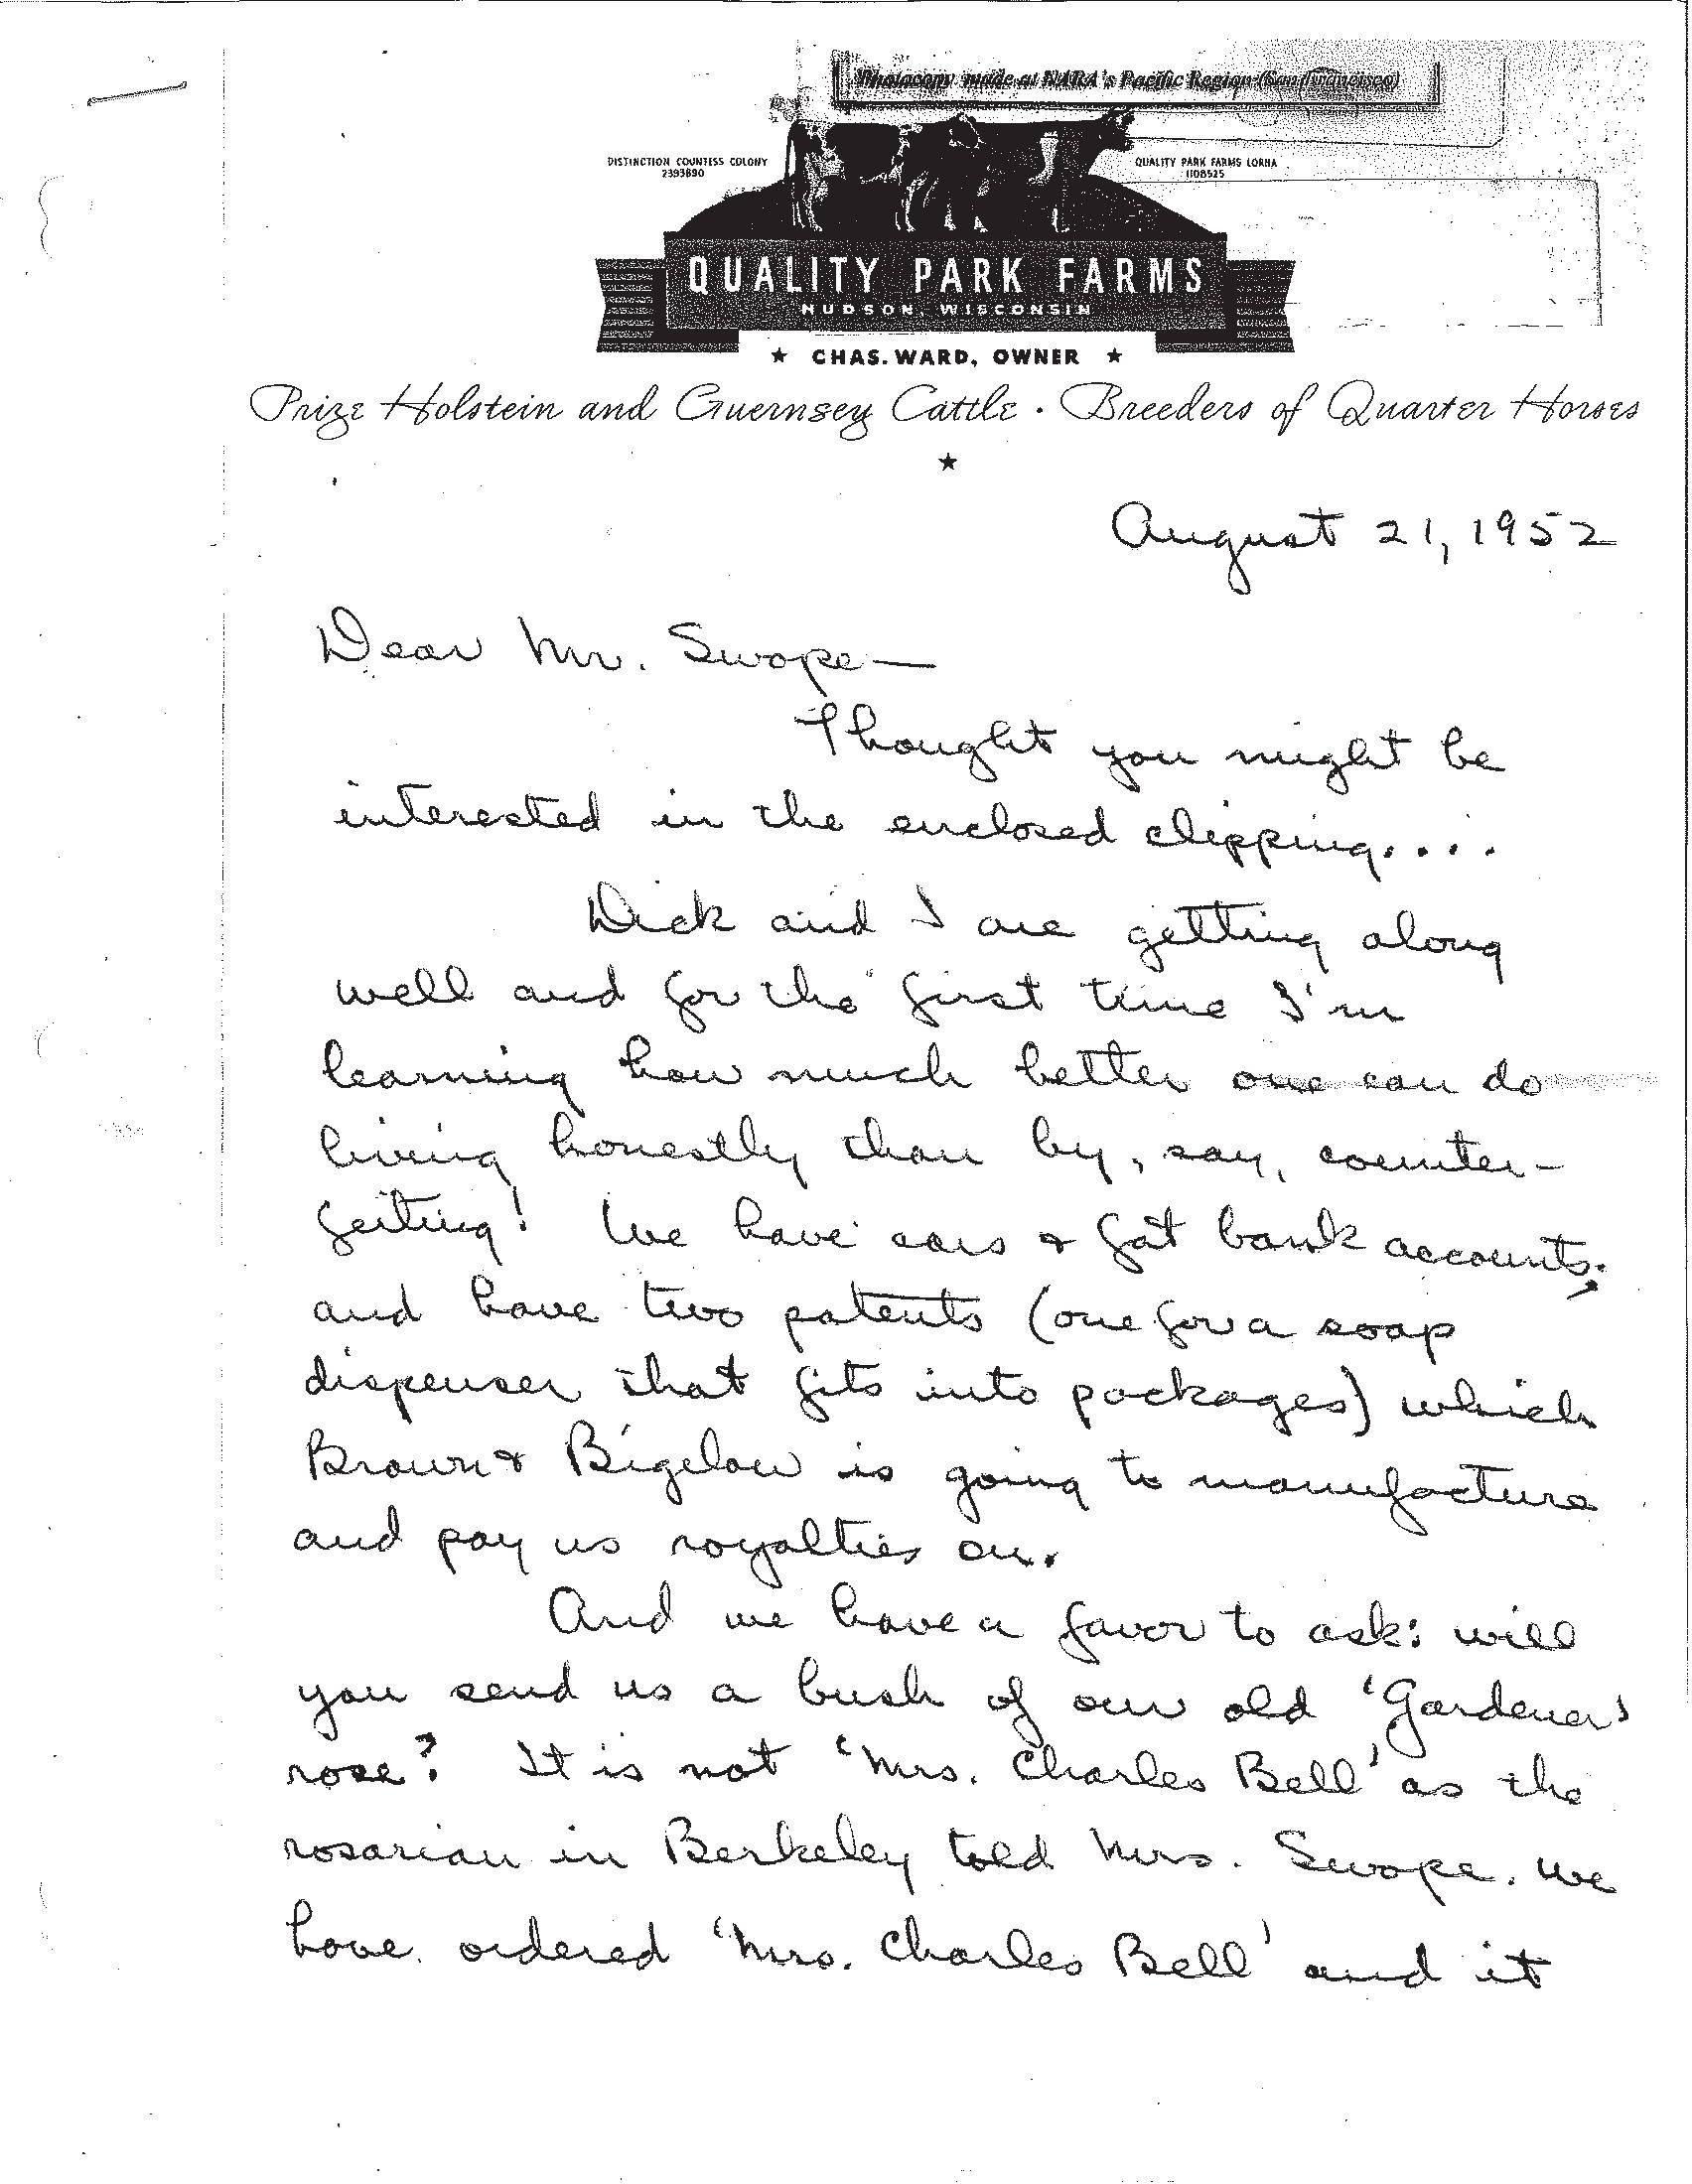 Photocopy made at NARA's Pacific Region (San Francisco)
DISTINCTION COUNTESS COLONY
2393890
QUALITY PARK FARMS LORNA
1108525
QUALITY PARK FARMS
HUDSON, WISCONSIN
★ CHAS. WARD, OWNER ★
Prize Holstein and Guernsey Cattle · Breeders of Quarter Horses
★
August 21, 1952
Dear Mr. Swope—
Thought you might be
interested in the enclosed clipping....
Dick and I are getting along
well and for the first time I'm
learning how much better one can do
living honestly than by, say, counter-
feiting! We have cars & fat bank accounts;
and have two patents (one for a soap
dispenser that fits into packages) which
Brown & Bigelow is going to manufacture
and pay us royalties on.
And we have a favor to ask: will
you send us a bush of our old 'Gardener'
rose? It is not 'Mrs. Charles Bell' as the
rosarian in Berkeley told Mrs. Swope. We
have ordered 'Mrs. Charles Bell' and it